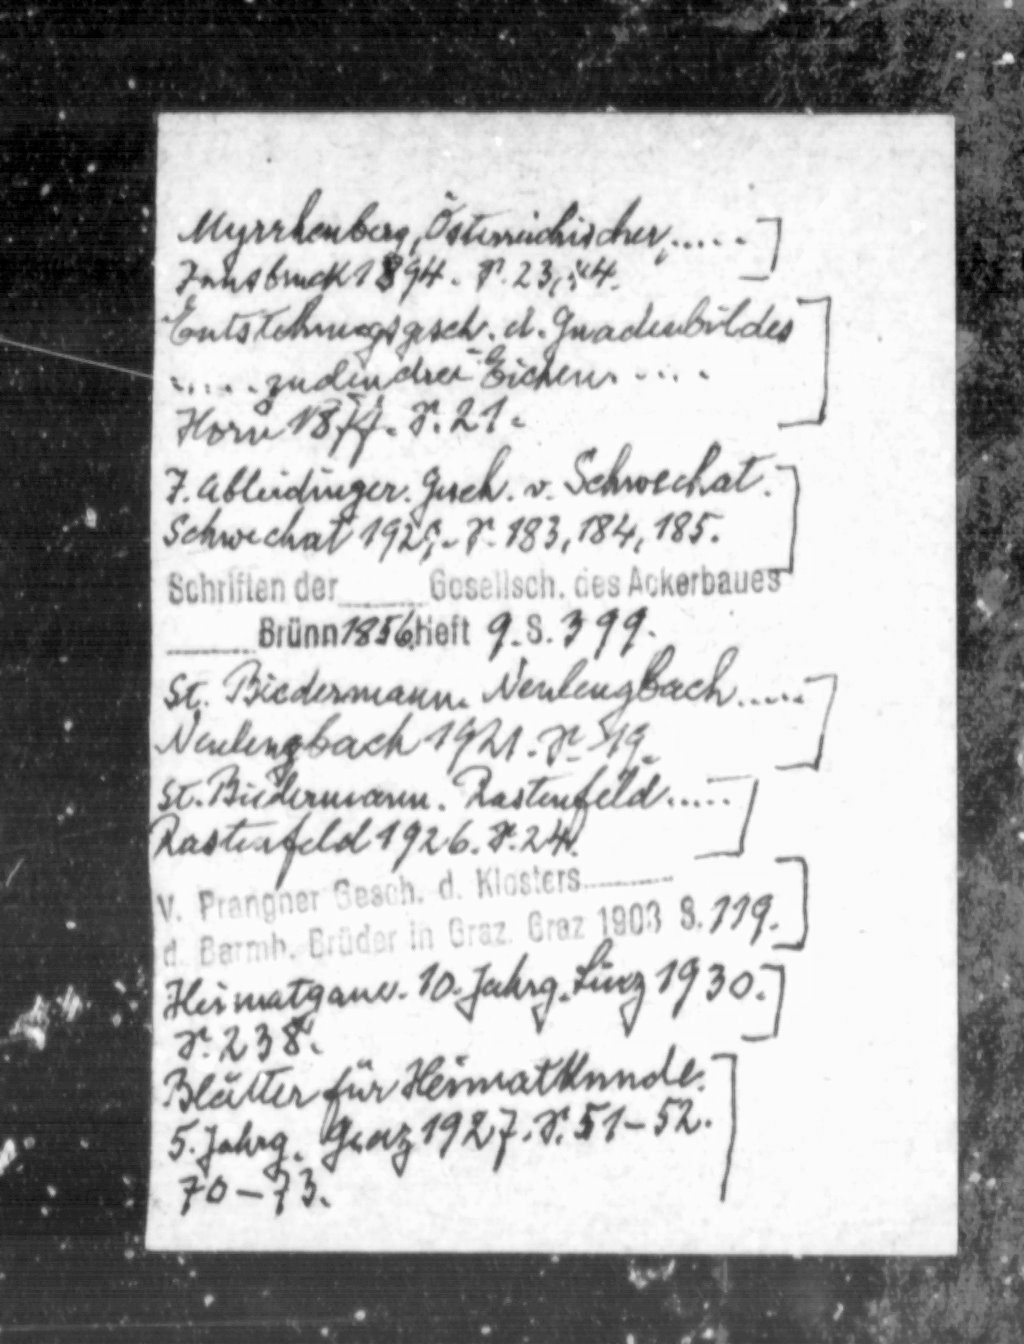 Myrrhenberg, Österreichischer, ..... ]
Innsbruck 1894. S. 23, 24.
Entstehungsgesch. d. Gnadenbildes
..... zu den drei Eichen. ....
Horn 1877. S. 21.
J. Ableidinger. Gesch. v. Schwechat.
Schwechat 1929. S. 183, 184, 185.
Schriften der ____ Gesellsch. des Ackerbaues
____ Brünn 1856. Heft 9. S. 399.
St. Biedermann. Neulengbach .....
Neulengbach 1921. S. 19.
St. Biedermann. Rastenfeld .....
Rastenfeld 1926. S. 24.
V. Prangner Gesch. d. Klosters ____
d. Barmh. Brüder in Graz. Graz 1903 S. 119.
Heimatgaue. 10. Jahrg. Linz 1930.
S. 238.
Blätter für Heimatkunde.
5. Jahrg. Graz 1927. S. 51-52.
70-73.